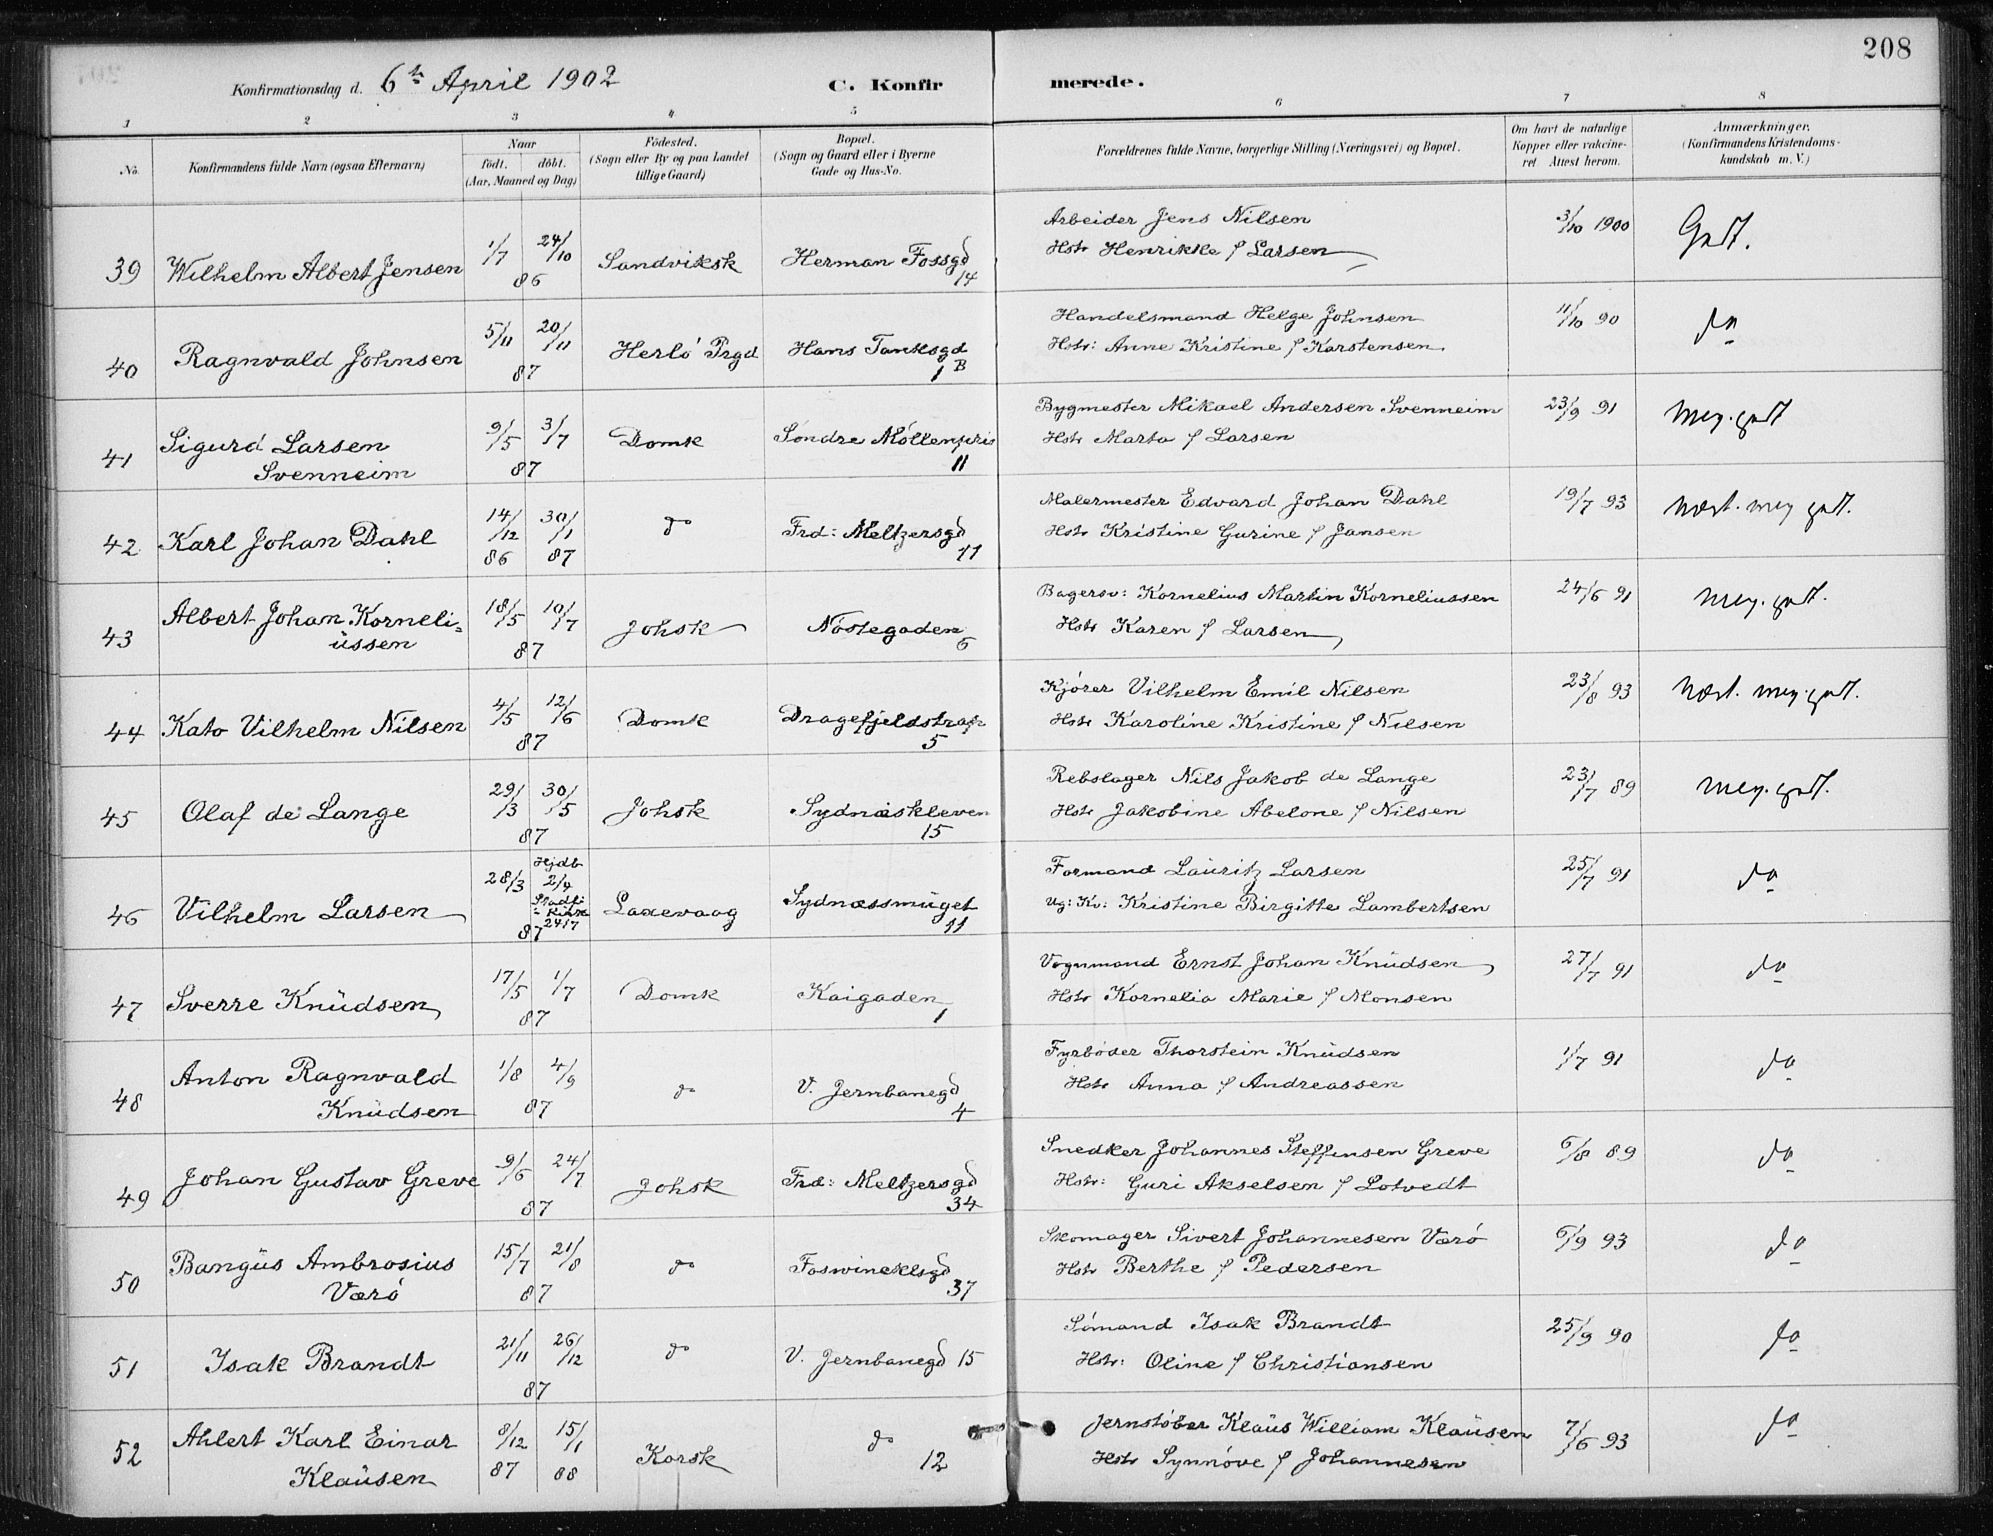 208
Konfirmationsdag d. 6te April 1902 C. Konfirmerede.
1 2 3 4 5 6 7 8
No. Konfirmandens fulde Navn (ogsaa Efternavn) Naar født. døbt. (Aar, Maaned og Dag) Fødested. (Sogn eller By og paa Landet tillige Gaard) Bopæl. (Sogn og Gaard eller i Byerne Gade og Hus-No. Forældrenes fulde Navne, borgerlige Stilling (Næringsvei) og Bopæl. Om havt de naturlige Kopper eller vakcineret Attest herom. Anmærkninger. (Konfirmandens Kristendomskundskab m. V.)
Arbeider Jens Nilsen 3/10 1900 Godt.
39 Wilhelm Albert Jensen 1/7 24/10 86 Sandviksk Herman Fossgd 14 Hstr Henrikke f Larsen
Handelsmand Helge Johnsen 11/10 90 do
40 Ragnvald Johnsen 5/11 20/11 87 Herlö Prgd Hans Tanksgd 1 B Hstr: Anne Kristine f Karstensen
Bygmester Mikael Andersen Svenneim 23/9 91 Meg. godt
41 Sigurd Larsen 9/5 3/7 87 Domk Söndre Möllenpris 11 Hstr Marta f Larsen
Svenneim
Malermester Edvard Johan Dahl 19/7 93 Næst. meg godt.
42 Karl Johan Dahl 14/12 86 30/1 87 do Frd: Meltzersgd 11 Hstr Kristine Gurine f Jansen
Bagersv: Kornelius Martin Korneliussen 24/6 91 Meg. godt.
43 Albert Johan Korneli= 18/5 10/7 87 Johsk Nöstegaden 6 Hstr Karen f Larsen
üssen
Kjörer Vilhelm Emil Nilsen 23/8 93 Næst. meg. godt.
44 Kato Vilhelm Nilsen 4/5 12/6 87 Domk Dragefjeldstrap 5 Hstr Karoline Kristine f Nilsen
Rebslager Nils Jakob de Lange 23/7 89 Meg. godt.
45 Olaf de Lange 29/3 30/5 87 Johsk Sydnæskleven 15 Hstr Jakobine Abelone f Nilsen
Formand Lauritz Larsen 25/7 91 do
46 Vilhelm Larsen 28/3 Hjdb 2/4 24/7 87 Laxevaag Sydnæssmüget 11 Ug: Kv: Kristine Birgitte Lambertsen
Vognmand Ernst Johan Knüdsen 27/7 91 do
47 Sverre Knüdsen 17/5 1/7 87 Domk Kaigaden 1 Hstr Kornelia Marie f Monsen
Fyrböder Thorstein Knüdsen 1/7 91 do
48 Anton Ragnvald 1/8 4/9 87 do V. Jernbanegd 4 Hstr Anna f Andreassen
Knüdsen
Snedker Johannes Steffensen Greve 6/8 89 do
49 Johan Gustav Greve 9/6 24/7 87 Johsk Frd: Meltzersgd 34 Hstr: Guri Akselsen f Lotvedt
Skomager Sivert Johannesen Værö 6/9 93 do
50 Bangüs Ambrosius 15/7 21/8 87 do Foswinckelsgd 37 Hstr Berthe f Pedersen
Værö
Sömand Isak Brandt 25/9 90 do
51 Isak Brandt 21/11 26/12 87 do V. Jernbanegd 15 Hstr: Oline f Christiansen
Jernstöber Klaüs William Klaüsen 7/6 93 do
52 Ahlert Karl Einar 8/12 87 15/1 88 Korsk do 12 Hstr Synnöve f Johannesen
Klaüsen